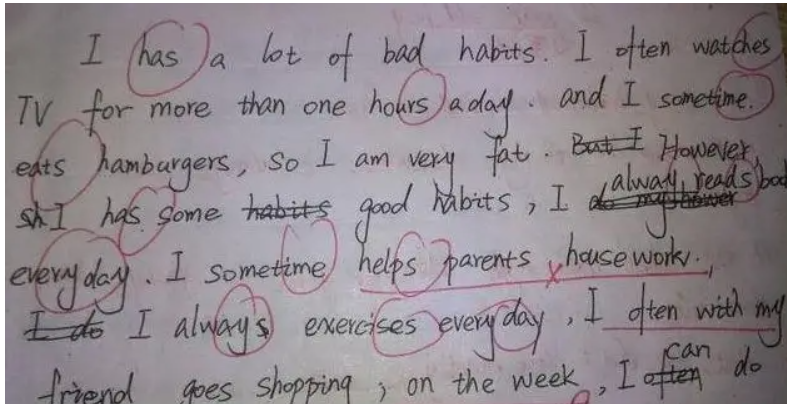 I has a lot of bad habits. I often watches
TV for more than one hours a day. and I sometime.
eats hamburgers, so I am very fat. But I However,
sh I has some habits good habits, I do my shower alway reads bod
everyday. I sometime helps parents housework.,
I do I always exercises everyday, I often with my
friend goes shopping, on the week, I often can do